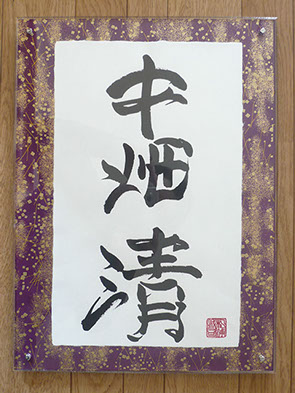 中畑清